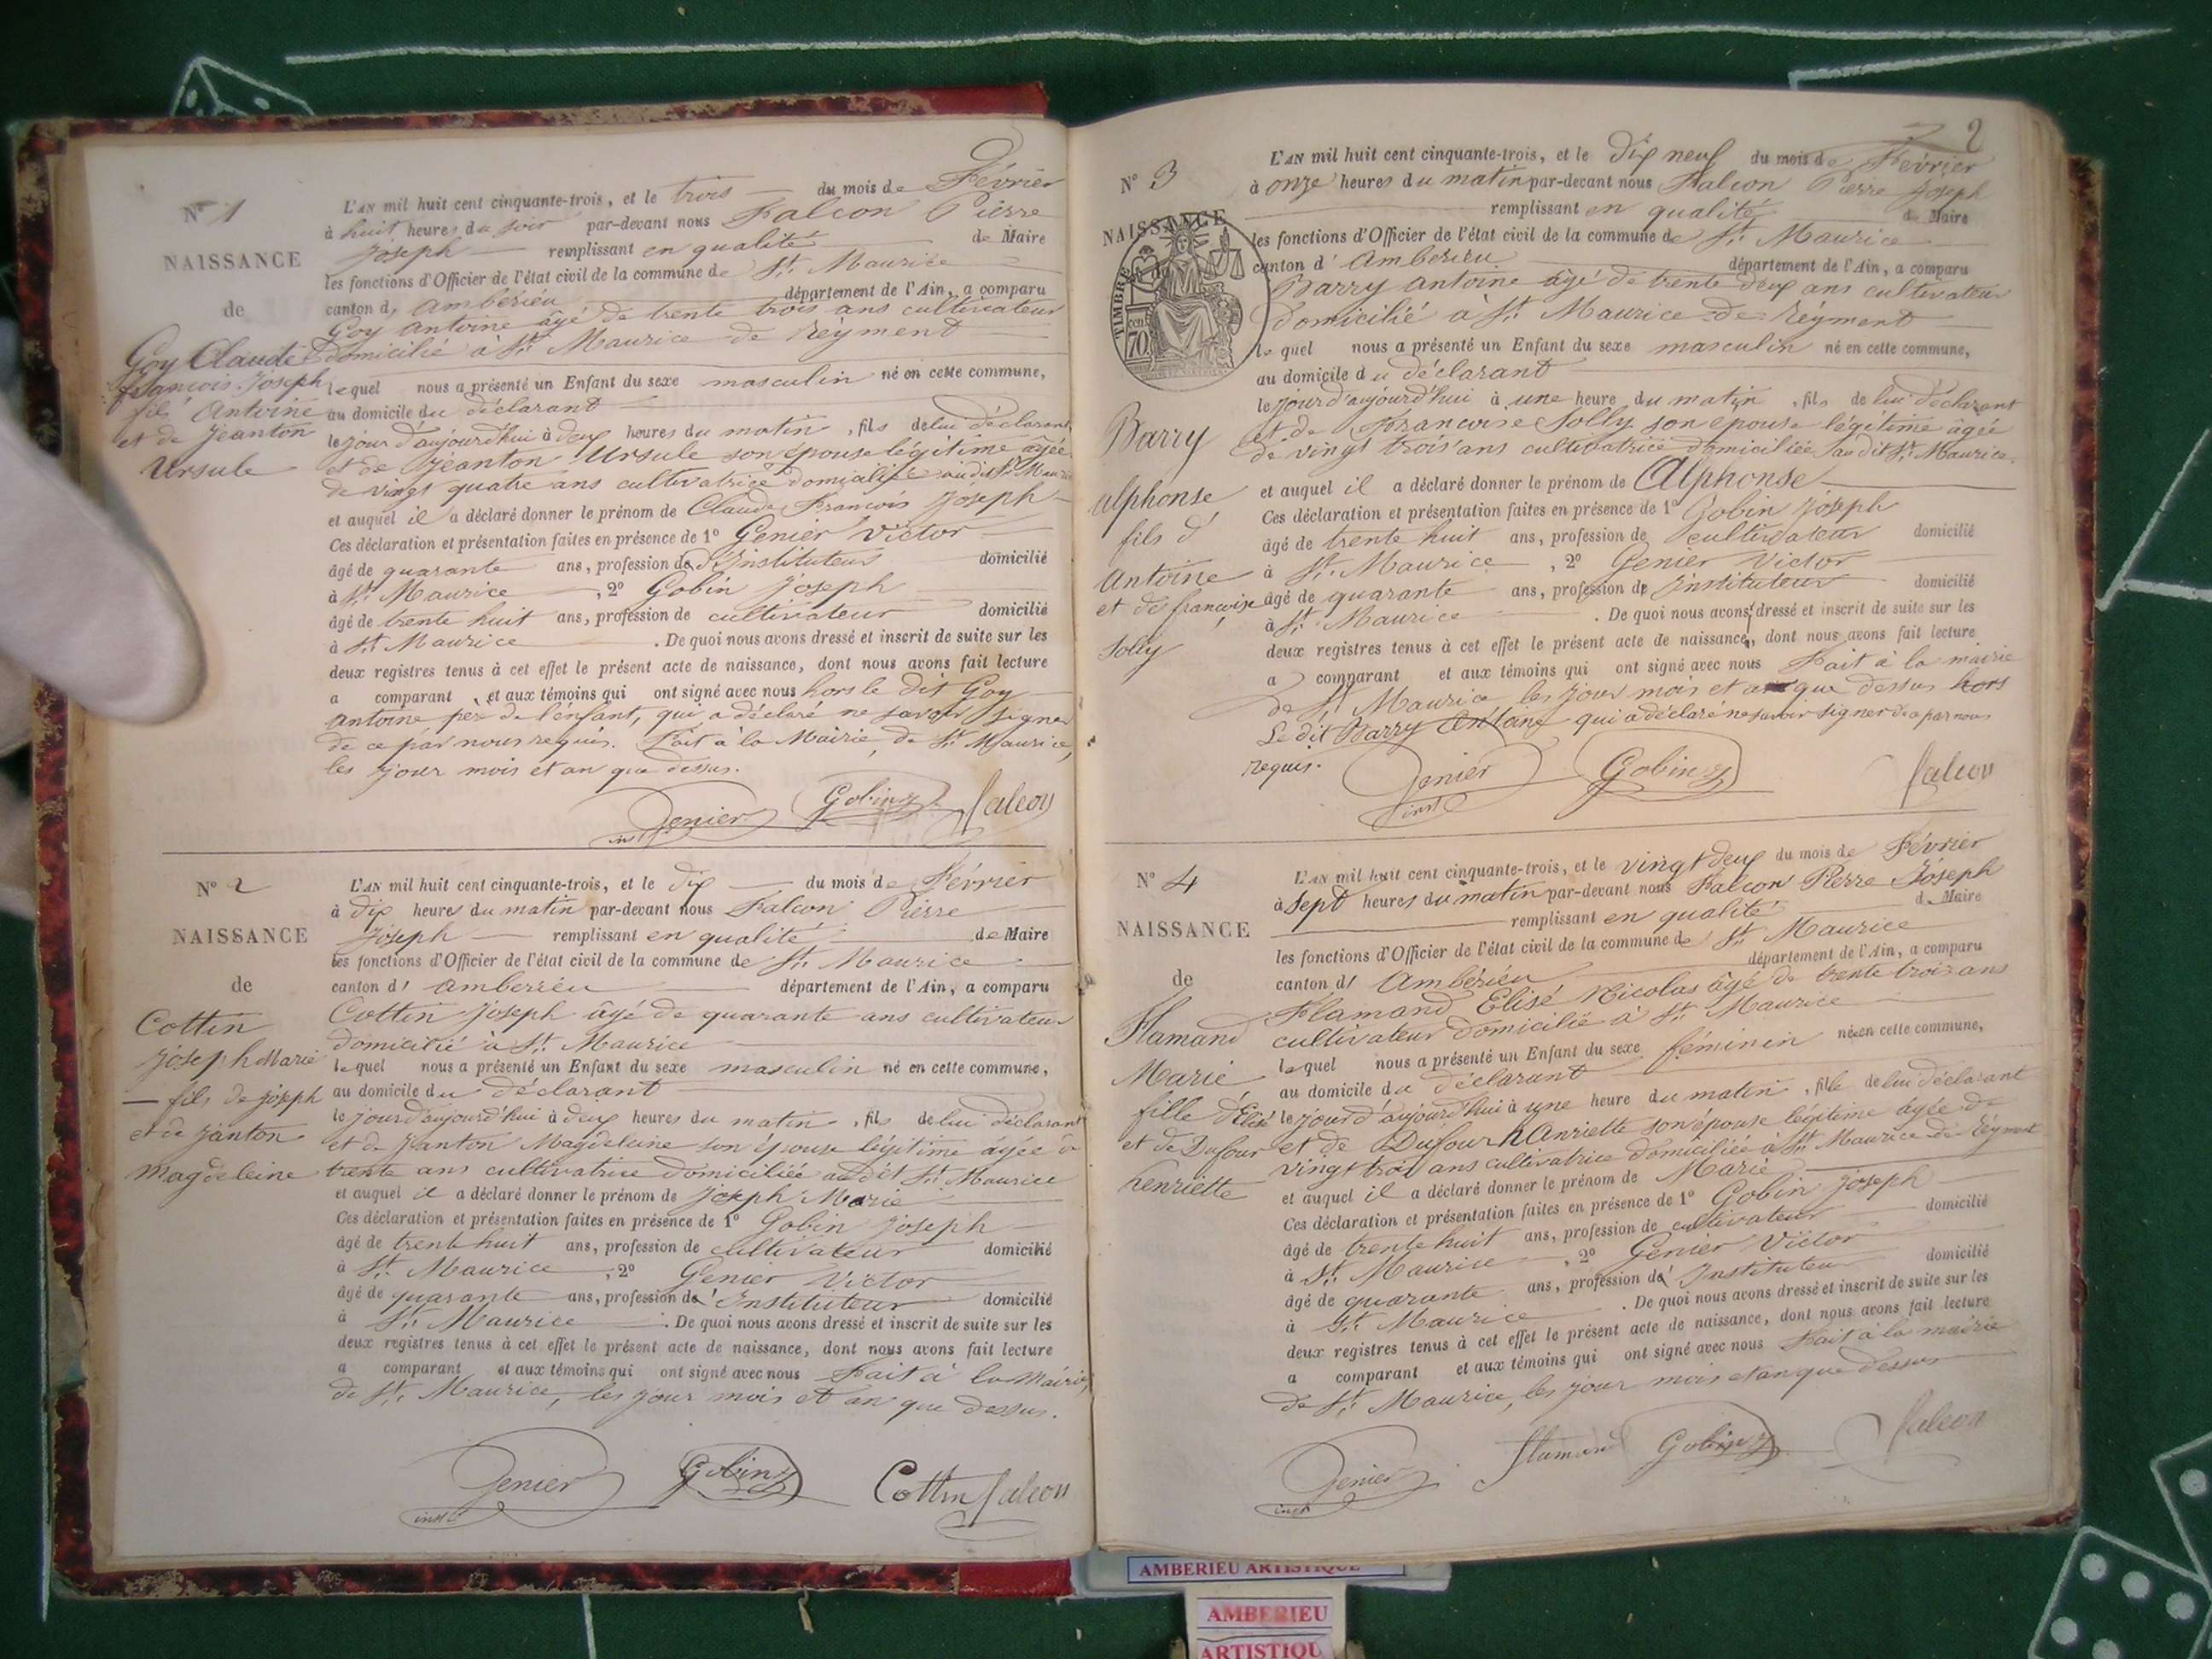 N° 1
NAISSANCE
de
Goy Claude
françois Joseph
fils Antoine
et de Jeanton
Ursule
L'AN mil huit cent cinquante-trois, et le trois du mois de Février
à huit heures du soir par-devant nous Falcon Pierre
Joseph remplissant en qualité de Maire
les fonctions d'Officier de l'état civil de la commune de St. Maurice
canton d' Ambérieu département de l'Ain, a comparu
Goy Antoine âgé de trente trois ans cultivateur
domicilié à St. Maurice de Réyment
lequel nous a présenté un Enfant du sexe masculin né en cette commune,
au domicile du déclarant
le jour d'aujourd'hui à deux heures du matin, fils de lui déclarant
et de Jeanton Ursule son épouse légitime âgée
de vingt quatre ans cultivatrice domiciliée au dit St. Maurice
et auquel il a déclaré donner le prénom de Claude François Joseph
Ces déclaration et présentation faites en présence de 1° Genier Victor
âgé de quarante ans, profession d'Instituteur domicilié
à St. Maurice, 2° Gobin Joseph
âgé de trente huit ans, profession de cultivateur domicilié
à St. Maurice. De quoi nous avons dressé et inscrit de suite sur les
deux registres tenus à cet effet le présent acte de naissance, dont nous avons fait lecture
a comparant, et aux témoins qui ont signé avec nous hors le dit Goy
Antoine père de l'enfant, qui a déclaré ne savoir signer
de ce par nous requis. Fait à la Mairie de St. Maurice,
les jour mois et an que dessus.
Genier Gobin J Falcon
inst
N° 2
NAISSANCE
de
Cottin
Joseph Marie
fils de joseph
et de Janton
Magdeleine
L'AN mil huit cent cinquante-trois, et le dix du mois de Février
à dix heures du matin par-devant nous Falcon Pierre
Joseph remplissant en qualité de Maire
les fonctions d'Officier de l'état civil de la commune de St. Maurice
canton d' Ambérieu département de l'Ain, a comparu
Cottin Joseph âgé de quarante ans cultivateur
domicilié à St. Maurice
lequel nous a présenté un Enfant du sexe masculin né en cette commune,
au domicile du déclarant
le jour d'aujourd'hui à deux heures du matin, fils de lui déclarant
et de Janton Magdeleine son épouse légitime âgée de
trente ans cultivatrice domiciliée au dit St. Maurice
et auquel il a déclaré donner le prénom de Joseph Marie
Ces déclaration et présentation faites en présence de 1° Gobin Joseph
âgé de trente huit ans, profession de cultivateur domicilié
à St. Maurice, 2° Genier Victor
âgé de quarante ans, profession d'Instituteur domicilié
à St. Maurice. De quoi nous avons dressé et inscrit de suite sur les
deux registres tenus à cet effet le présent acte de naissance, dont nous avons fait lecture
a comparant et aux témoins qui ont signé avec nous Fait à la Mairie
de St. Maurice, les jour mois et an que dessus.
Genier Gobin J Cottin Falcon
inst
2
N° 3
NAISSANCE
TIMBRE
cen
70
Barry
alphonse
fils d'
Antoine
et de françoise
Solly
L'AN mil huit cent cinquante-trois, et le dix neuf du mois de Février
à onze heures du matin par-devant nous Falcon Pierre Joseph
remplissant en qualité de Maire
les fonctions d'Officier de l'état civil de la commune de St. Maurice
canton d' Ambérieu département de l'Ain, a comparu
Barry Antoine âgé de trente deux ans cultivateur
domicilié à St. Maurice de Réyment
lequel nous a présenté un Enfant du sexe masculin né en cette commune,
au domicile du déclarant
le jour d'aujourd'hui à une heure du matin, fils de lui déclarant
et de Francoise Solly son épouse légitime âgée
de vingt trois ans cultivatrice domiciliée au dit St. Maurice.
et auquel il a déclaré donner le prénom de Alphonse
Ces déclaration et présentation faites en présence de 1° Gobin Joseph
âgé de trente huit ans, profession de cultivateur domicilié
à St. Maurice, 2° Genier Victor
âgé de quarante ans, profession de Instituteur domicilié
à St. Maurice. De quoi nous avons dressé et inscrit de suite sur les
deux registres tenus à cet effet le présent acte de naissance, dont nous avons fait lecture
a comparant et aux témoins qui ont signé avec nous Fait à la mairie
de St. Maurice, les jour mois et an que dessus hors
Le dit Barry Antoine qui a déclaré ne savoir signer de a par nous
requis.
Genier Gobin J Falcon
inst
N° 4
NAISSANCE
de
Flamand
Marie
fille d'Elisé
et de Dufour
henriette
L'AN mil huit cent cinquante-trois, et le vingt deux du mois de Février
à sept heures du matin par-devant nous Falcon Pierre Joseph
remplissant en qualité de Maire
les fonctions d'Officier de l'état civil de la commune de St. Maurice
canton d' Ambérieu département de l'Ain, a comparu
Flamand Elisé Nicolas âgé de trente trois ans
cultivateur domicilié à St. Maurice
lequel nous a présenté un Enfant du sexe féminin née en cette commune,
au domicile du déclarant
le jour d'aujourd'hui à une heure du matin, fille de lui déclarant
et de Dufour hAnriette son épouse légitime âgée de
vingt trois ans cultivatrice domiciliée à St. Maurice de Réyment
et auquel il a déclaré donner le prénom de Marie
Ces déclaration et présentation faites en présence de 1° Gobin Joseph
âgé de trente huit ans, profession de cultivateur domicilié
à St. Maurice, 2° Genier Victor
âgé de quarante ans, profession d'Instituteur domicilié
à St. Maurice. De quoi nous avons dressé et inscrit de suite sur les
deux registres tenus à cet effet le présent acte de naissance, dont nous avons fait lecture
a comparant et aux témoins qui ont signé avec nous Fait à la mairie
de St. Maurice, les jour mois et an que dessus
Genier Flamand Gobin J Falcon
inst
AMBERIEU ARTISTIQUE
AMBERIEU
ARTISTIQU